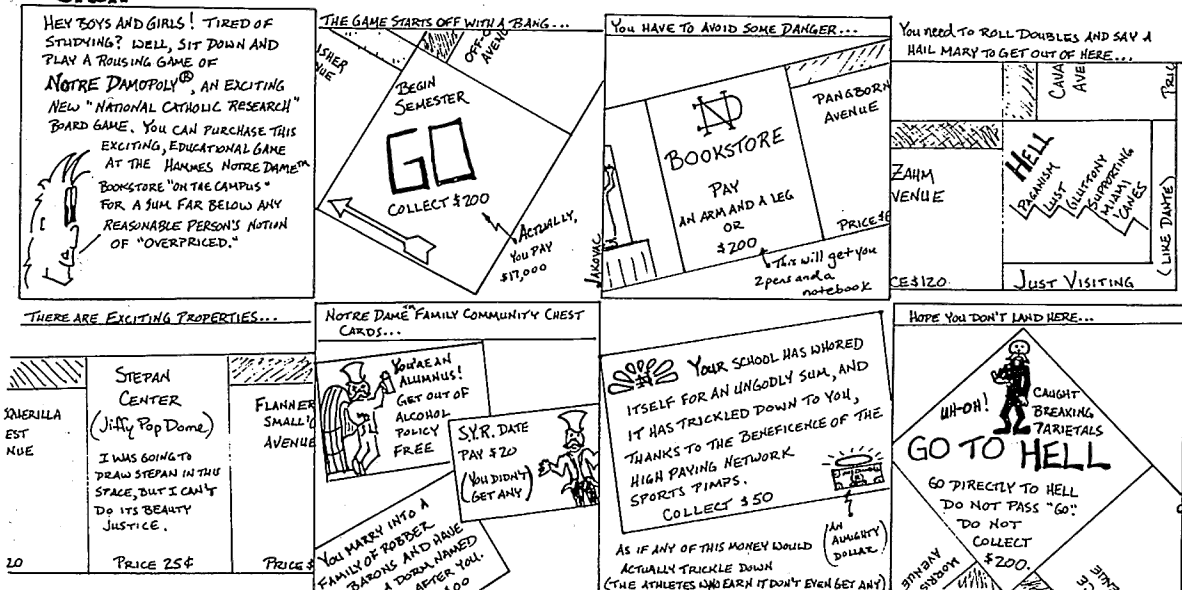 HEY BOYS AND GIRLS! TIRED OF
STUDYING? WELL, SIT DOWN AND
PLAY A ROUSING GAME OF
NOTRE DAMOPOLY®, AN EXCITING
NEW "NATIONAL CATHOLIC RESEARCH"
BOARD GAME. YOU CAN PURCHASE THIS
EXCITING, EDUCATIONAL GAME
AT THE HAMMES NOTRE DAME™
BOOKSTORE "ON THE CAMPUS"
FOR A SUM FAR BELOW ANY
REASONABLE PERSON'S NOTION
OF "OVERPRICED."
THE GAME STARTS OFF WITH A BANG...
ISHER
NUE
OFF-C
AVENU
BEGIN
SEMESTER
GO
COLLECT $200
ACTUALLY,
YOU PAY
$17,000
JAKOVAC
YOU HAVE TO AVOID SOME DANGER...
ND
BOOKSTORE
PAY
AN ARM AND A LEG
OR
$200
PANGBORN
AVENUE
PRICE $
THIS WILL GET YOU
2 PENS AND A
NOTEBOOK
YOU NEED TO ROLL DOUBLES AND SAY A
HAIL MARY TO GET OUT OF HERE...
CAVA
AVE
PRIC
ZAHM
VENUE
CE $120
HELL
PAGANISM
LUST
GLUTTONY
SUPPORTING
MIAMI
CANES
(LIKE DANTE)
JUST VISITING
THERE ARE EXCITING PROPERTIES...
QUERILLA
EST
NUE
20
STEPAN
CENTER
(Jiffy Pop Dome)
I WAS GOING TO
DRAW STEPAN IN THIS
SPACE, BUT I CAN'T
DO ITS BEAUTY
JUSTICE.
PRICE 25¢
FLANNER
SMALL
AVENUE
PRICE $
NOTRE DAME™ FAMILY COMMUNITY CHEST
CARDS...
YOU'RE AN
ALUMNUS!
GET OUT OF
ALCOHOL
POLICY
FREE
S.Y.R. DATE
PAY $20
(YOU DIDN'T
GET ANY)
YOU MARRY INTO A
FAMILY OF ROBBER
BARONS AND HAVE
A DORM NAMED
AFTER YOU.
00
YOUR SCHOOL HAS WHORED
ITSELF FOR AN UNGODLY SUM, AND
IT HAS TRICKLED DOWN TO YOU,
THANKS TO THE BENEFICENCE OF THE
HIGH PAYING NETWORK
SPORTS PIMPS.
COLLECT $50
(AN
ALMIGHTY
DOLLAR)
AS IF ANY OF THIS MONEY WOULD
ACTUALLY TRICKLE DOWN
(THE ATHLETES WHO EARN IT DON'T EVEN GET ANY)
HOPE YOU DON'T LAND HERE...
UH-OH!
CAUGHT
BREAKING
PARIETALS
GO TO HELL
GO DIRECTLY TO HELL
DO NOT PASS "GO."
DO NOT
COLLECT
$200.
MORRIS
AVENUE